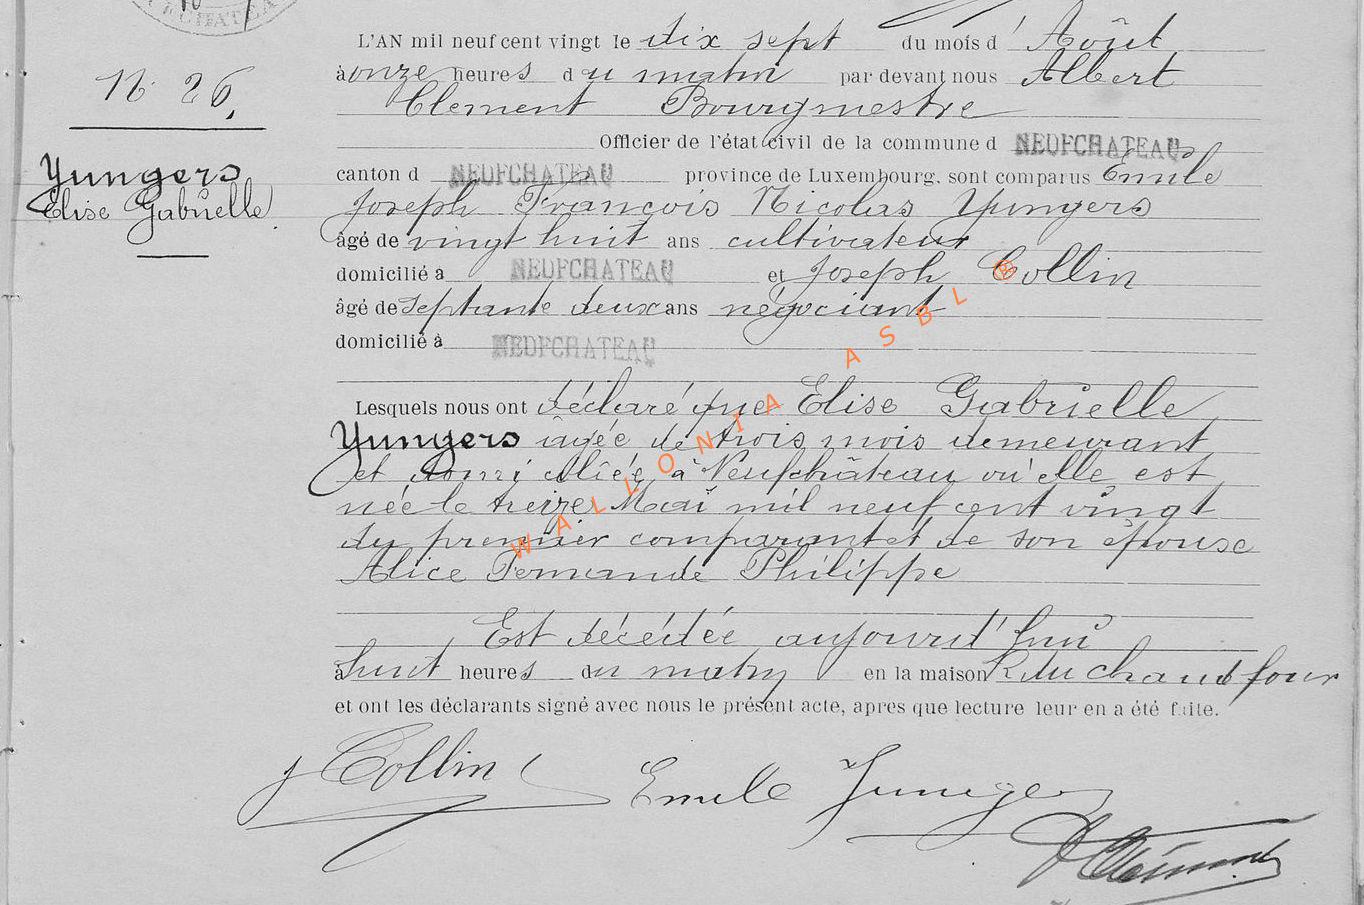 L'AN mil neuf cent vingt le dix sept du mois d'Août
à onze heures du matin par devant nous Albert
Clement Bourgmestre
Officier de l'état civil de la commune d NEUFCHATEAU
canton d NEUFCHATEAU province de Luxembourg, sont comparus Emile
Joseph François Nicolas Yungers
âgé de vingt huit ans cultivateur
domicilié à NEUFCHATEAU et Joseph Collin
âgé de septante deux ans négociant
domicilié à NEUFCHATEAU
Lesquels nous ont déclaré que Elise Gabrielle
Yungers âgée de trois mois demeurant
et domiciliée à Neufchâteau où elle est
née le treize Mai mil neuf cent vingt
du premier comparant et de son épouse
Alice Fernande Philippe
Est décédée aujourd'hui
à huit heures du matin en la maison R. du chaud four
et ont les déclarants signé avec nous le présent acte, après que lecture leur en a été faite.
J Collin Emile Junger
AClément
N° 26.
Yungers
Elise Gabrielle
WALLONIA ASBL ®